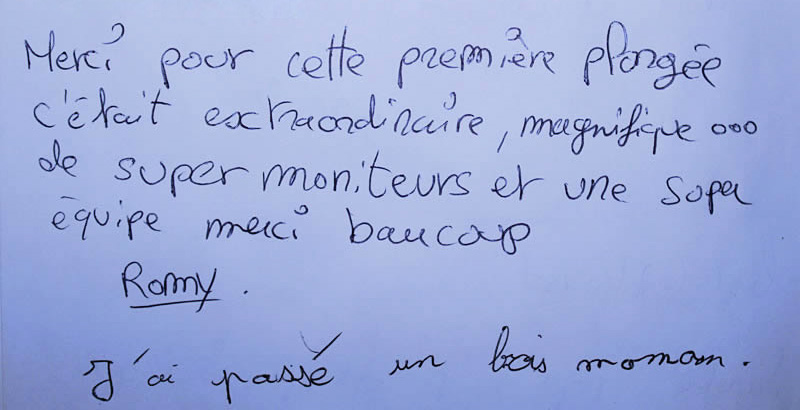 Merci pour cette première plongée
c'était extraordinaire, magnifique ooo
de super moniteurs et une super
équipe merci baucoup
Romy.
J'ai passé un bois momom.